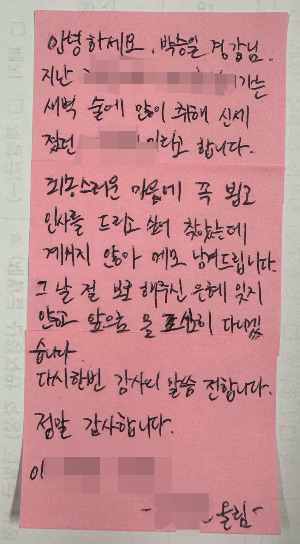 안녕하세요, 박승일 경장님.
지난 기는
새벽 술에 많이 취해 신세
졌던 이라고 합니다.
죄송스러운 마음에 꼭 뵙고
인사를 드리고 싶어 찾았는데
계시지 않아 메모 남겨드립니다.
그 날 절 보호해주신 은혜 잊지
않고 앞으로 몸 조심히 다니겠
습니다.
다시한번 감사의 말씀 전합니다.
정말 감사합니다.
이
- 올림-